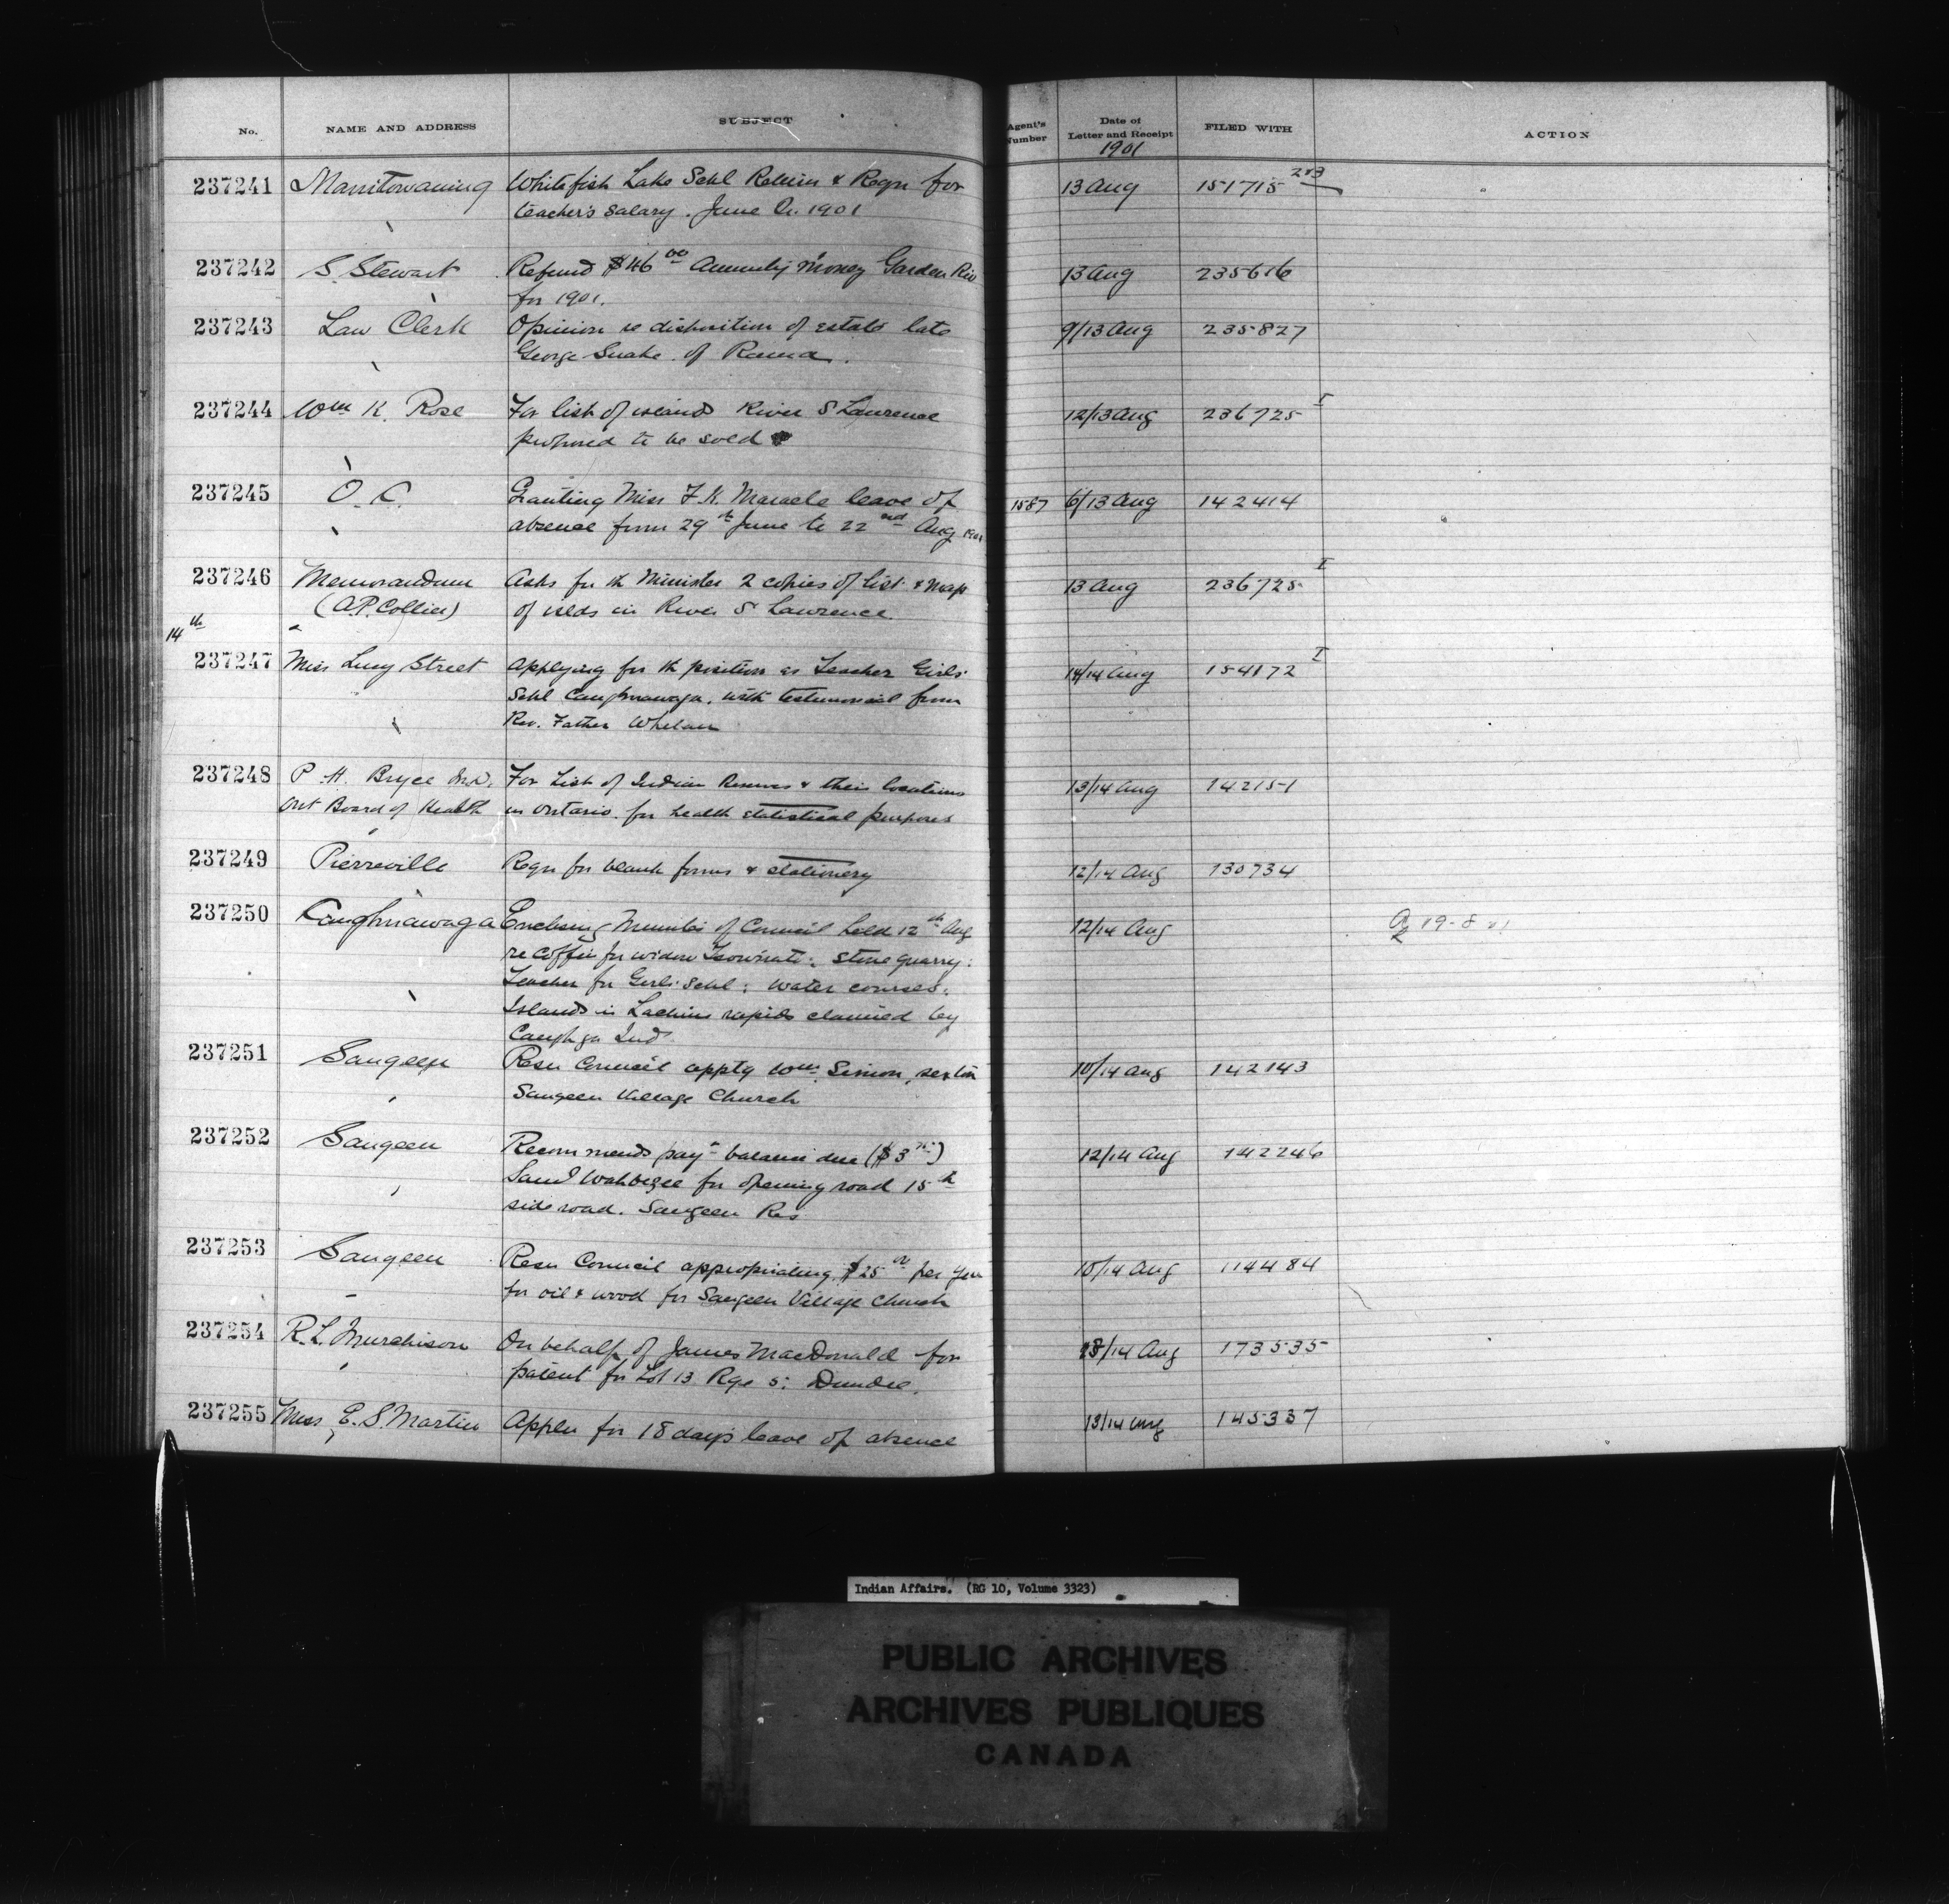 No. NAME AND ADDRESS SUBJECT Agent's Number Date of Letter and Receipt FILED WITH ACTION
1901
237241 Manitowaning Whitefish Lake Schl Return & Reqn for 13 Aug 151715 2/3
teacher's salary. June Qr. 1901
237242 S. Stewart Refund $46 00 Annuity Money Garden Riv 13 Aug 235616
for 1901.
237243 Law Clerk Opinion re disposition of estate late 9/13 Aug 235827
George Snake of Rama.
237244 Wm K. Rose For list of islands River St Lawrence 12/13 Aug 236725 I
proposed to be sold
237245 O.C. Granting Miss F. K. Maracle leave of 1587 6/13 Aug 142414
absence from 29th June to 22nd Aug 1901
237246 Memorandum Asks for th Minister 2 copies of list & map 13 Aug 236725 I
(A.P. Collier) of islds in River St Lawrence.
14th
237247 Miss Lucy Street Applying for th position as Teacher Girls' 14/14 Aug 154172 I
Schl Caughnawaga, with testimonial from
Rev. Father Whelan
237248 P. H. Bryce M.D. For List of Indian Reserves & their locations 13/14 Aug 142151
Ont Board of Health in Ontario for health statistical purposes
237249 Pierreville Reqn for blank forms & stationery 12/14 Aug 130734
237250 Caughnawaga Enclosing Minutes of Council held 12th Aug 12/14 Aug 19-8-01
re coffin for widow : stone quarry:
Teacher for Girls Schl: water courses:
Islands in Lachine rapids claimed by
Caughga Inds
237251 Saugeen Resn Council apptg Wm Simon, sexton 10/14 Aug 142143
Saugeen Village Church
237252 Saugeen Recommends payt balance due ($3 ) 12/14 Aug 142246
Saml Wahbezee for opening road 15th
side road. Saugeen Res
237253 Saugeen Resn Council appropriating $25 00 per year 10/14 Aug 114484
for oil & wood for Saugeen Village Church
237254 R. L. Murchison On behalf of James MacDonald for 13/14 Aug 173535
patent for Lot 13 Rge 5: Dundee.
237255 Miss E. S. Martin Appln for 18 days leave of absence 13/14 Aug 145337
Indian Affairs. (RG 10, Volume 3323)
PUBLIC ARCHIVES
ARCHIVES PUBLIQUES
CANADA